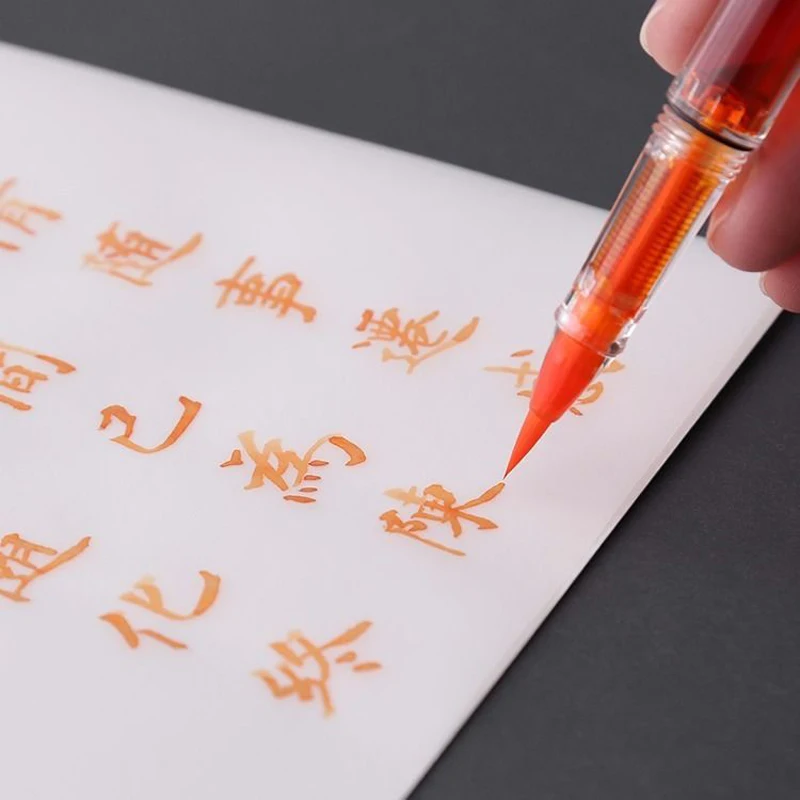 情隨事遷
間已為陳
隨化終